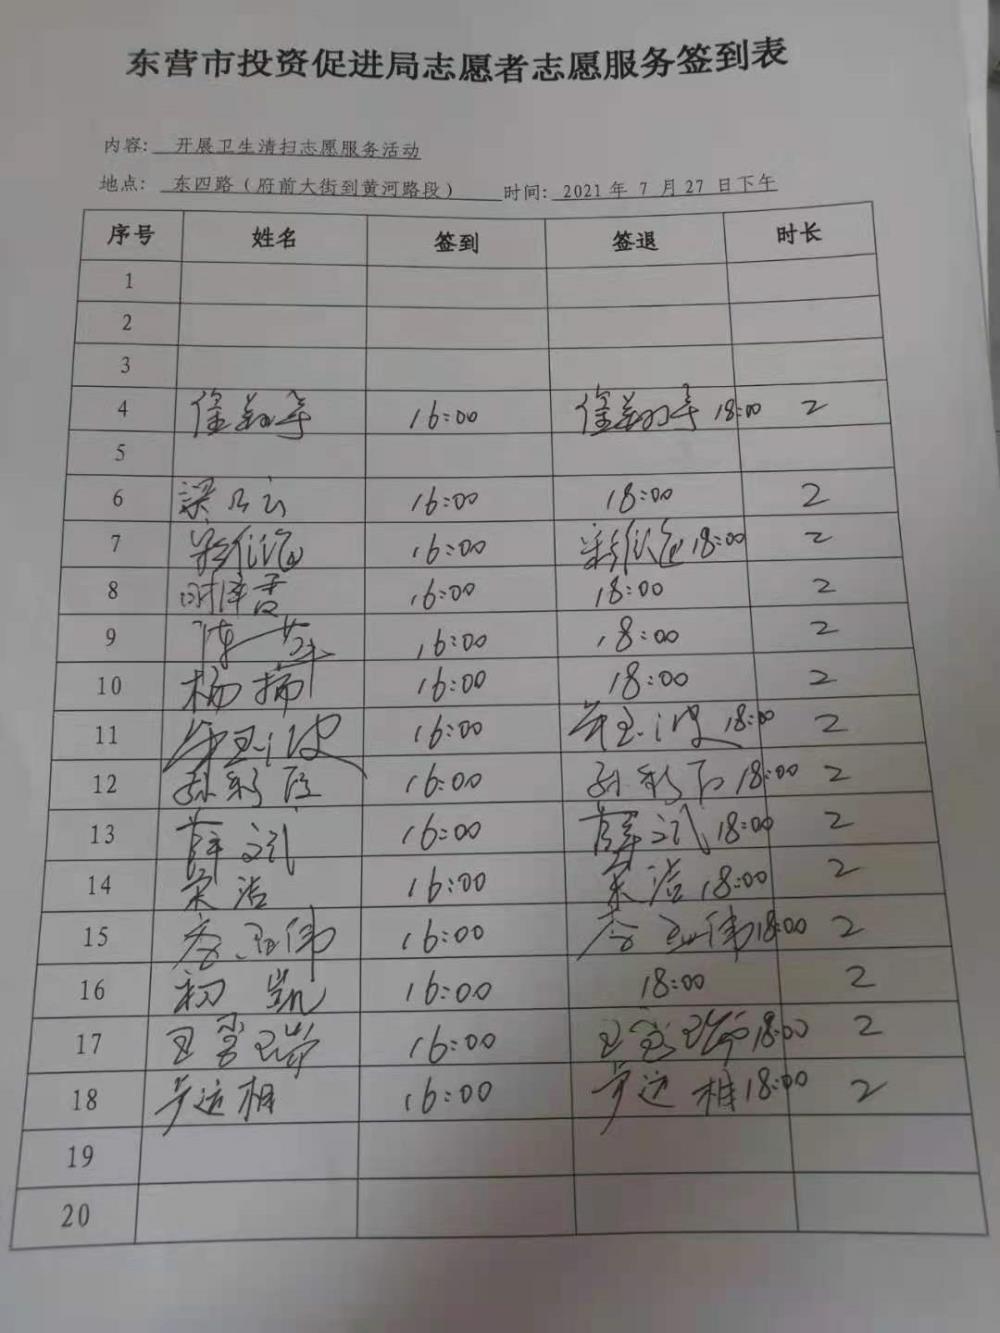 东营市投资促进局志愿者志愿服务签到表
内容: 开展卫生清扫志愿服务活动
地点: 东四路（府前大街到黄河路段） 时间: 2021 年 7 月 27 日下午
序号 姓名 签到 签退 时长
1
2
3
4 16:00 18:00 2
5
6 16:00 18:00 2
7 16:00 18:00 2
8 16:00 18:00 2
9 16:00 18:00 2
10 杨扬 16:00 18:00 2
11 16:00 18:00 2
12 16:00 18:00 2
13 薛文斌 16:00 薛文斌 18:00 2
14 宋洁 16:00 宋洁 18:00 2
15 16:00 18:00 2
16 初凯 16:00 18:00 2
17 16:00 18:00 2
18 16:00 18:00 2
19
20